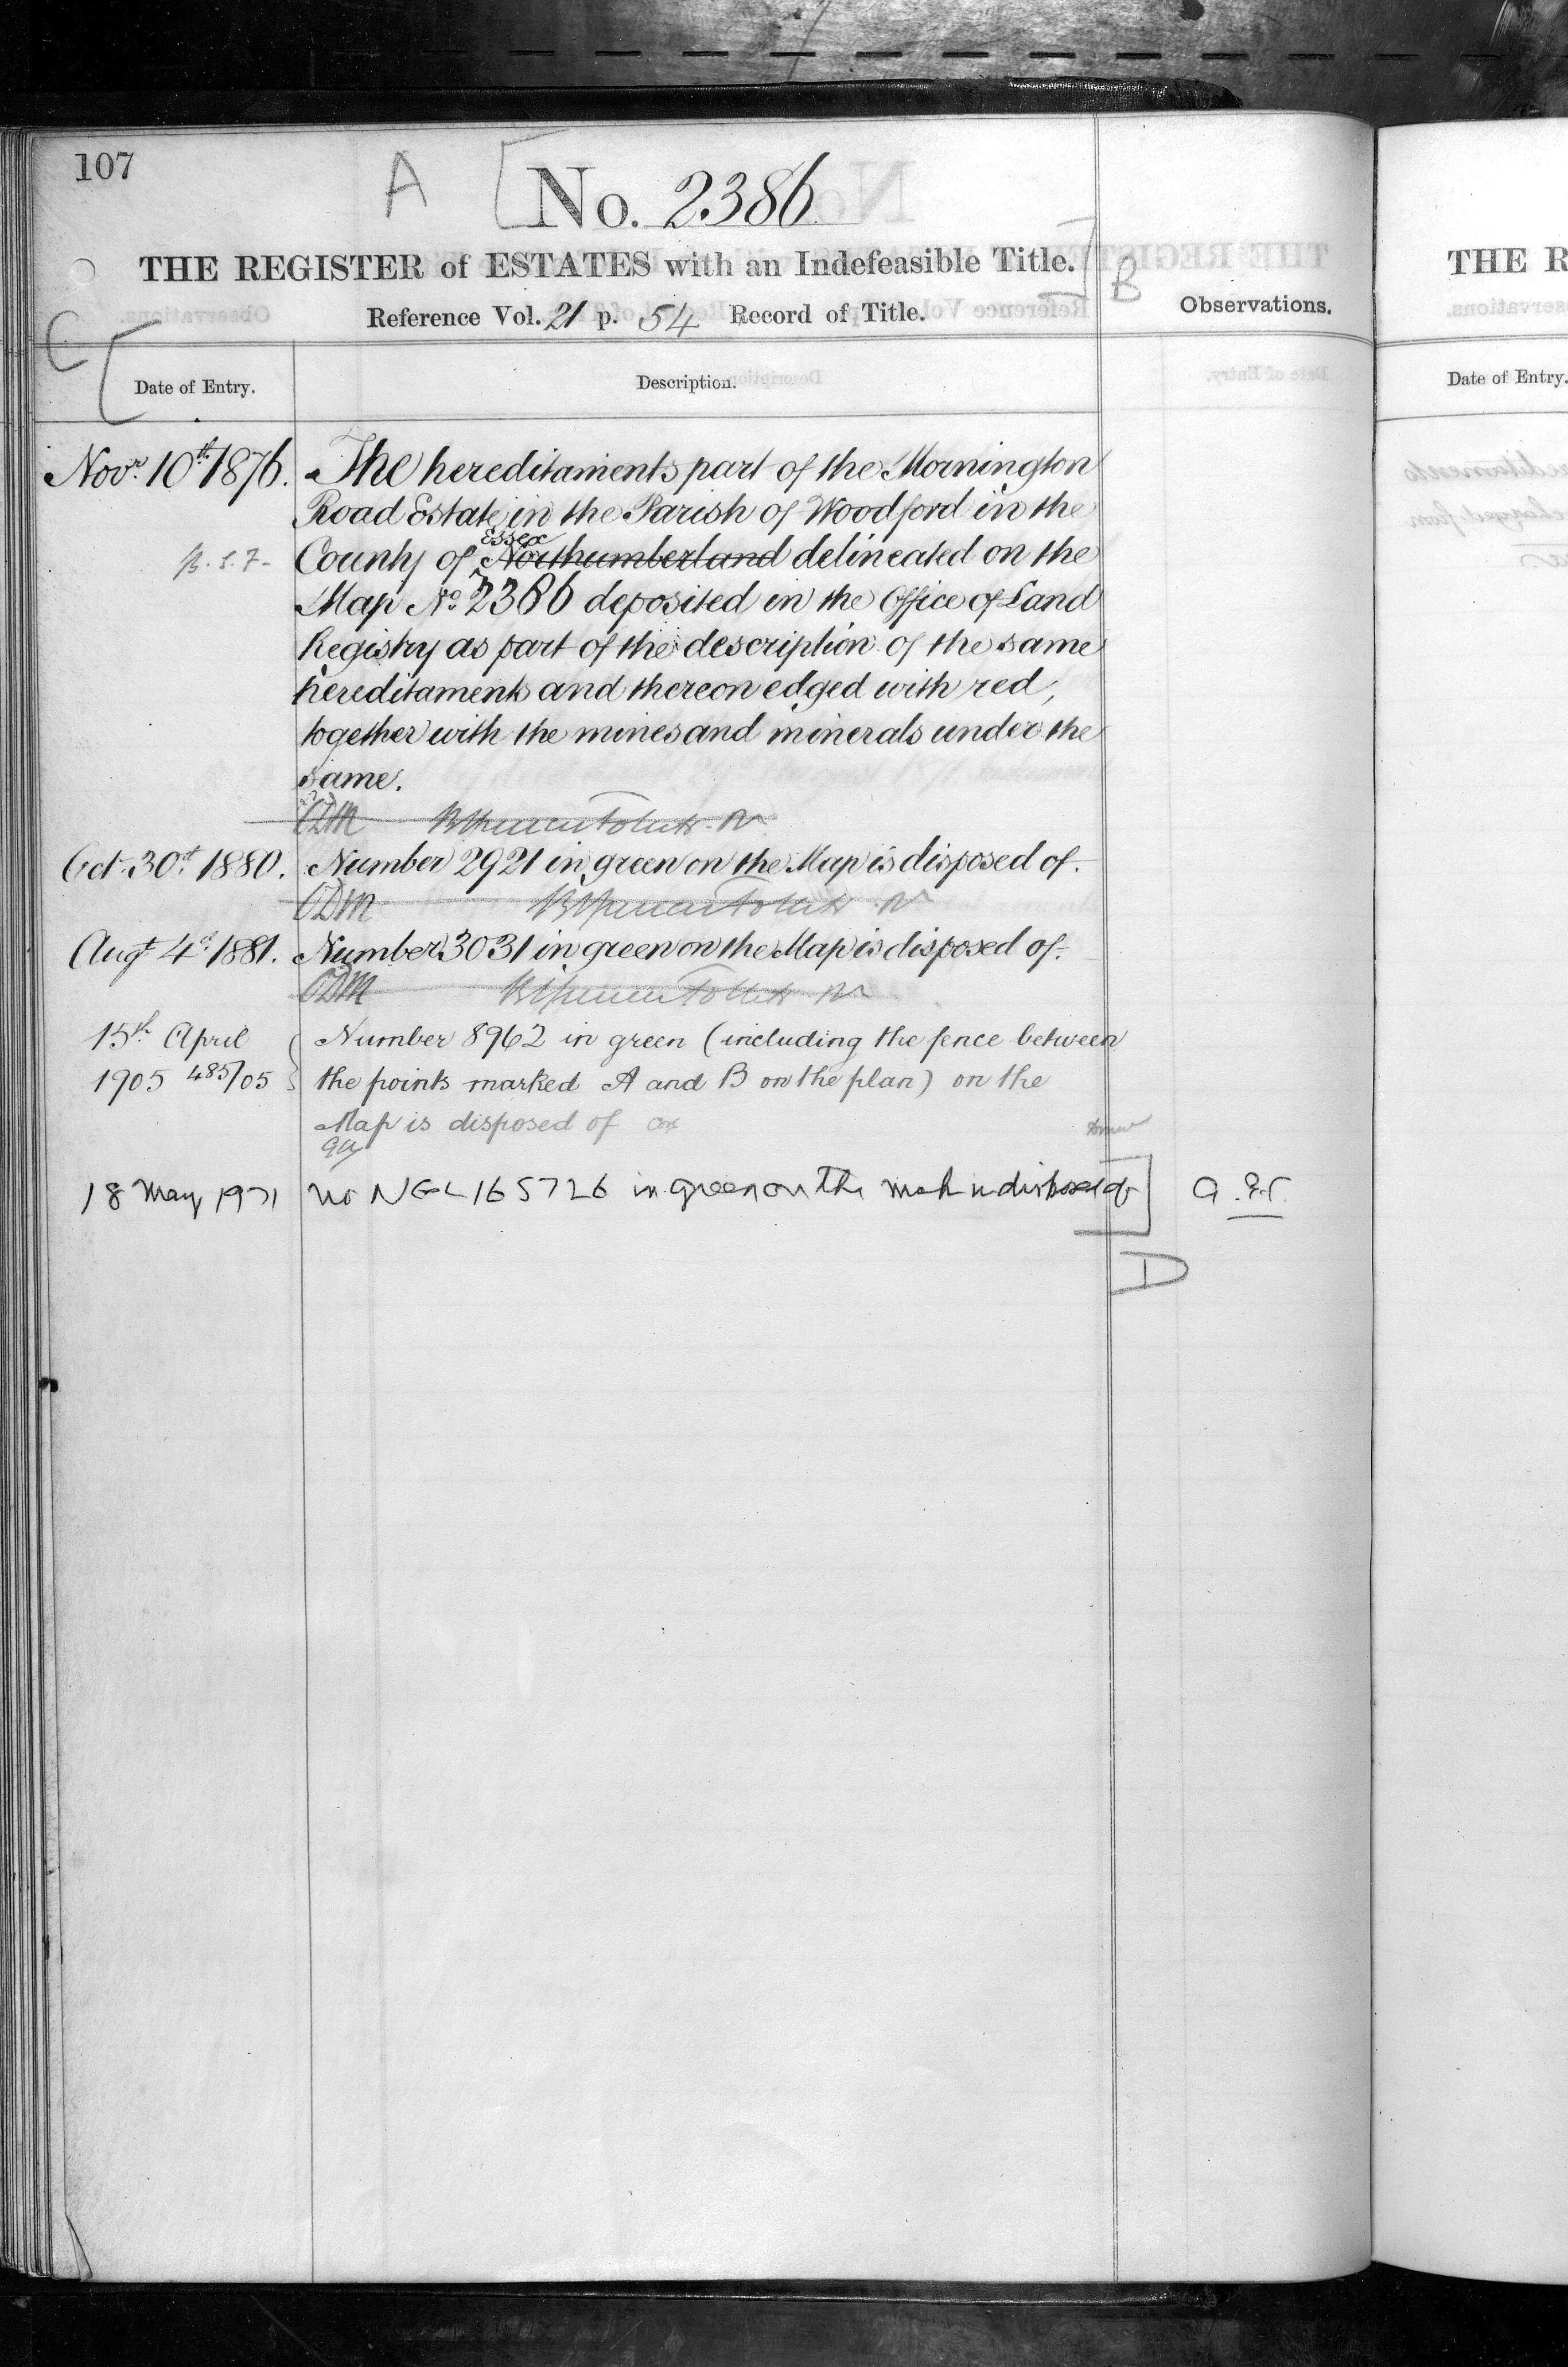 107
A
No. 2386
THE REGISTER of ESTATES with an Indefeasible Title.
B
Reference Vol. 21 p. 54 Record of Title.
Observations.
C
Date of Entry.
Description.
Novr. 10th 1876. The hereditaments part of the Mornington
Road Estate in the Parish of Woodford in the
Essex
County of Northumberland delineated on the
Map No. 2386 deposited in the Office of Land
Registry as part of the description of the same
hereditaments and thereon edged with red,
together with the mines and minerals under the
same.
Oct. 30th. 1880. Number 2921 in green on the Map is disposed of.
Augt. 4th. 1881. Number 3031 in green on the Map is disposed of.
15th April Number 8962 in green (including the fence between
1905 485/05 the points marked A and B on the plan) on the
Map is disposed of
18 May 1971 No NGL165726 in green on the map is disposed of
D
THE R
Date of Entry.